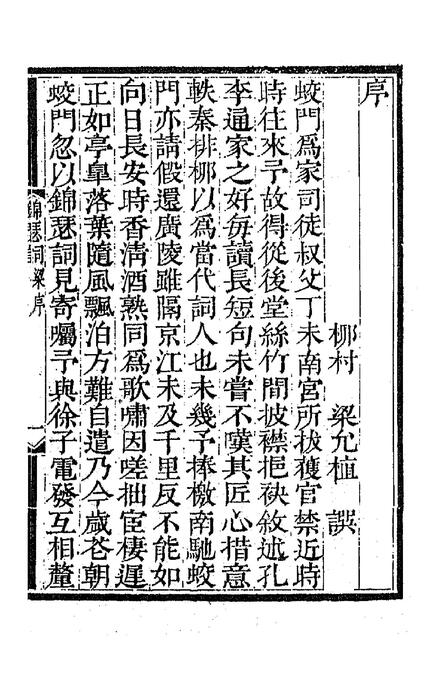 序
柳村　梁允植　譔
蛟門爲家司徒叔父丁未南宮所拔穫官禁近時
時往來予故得從後堂絲竹間披襟挹袂敘述孔
李通家之好每讀長短句未嘗不嘆其匠心措意
軼秦排柳以爲當代詞人也未幾予捧檄南馳蛟
門亦請假還廣陵雖隔京江未及千里反不能如
向日長安時香淸酒熟同爲歌嘯因嗟拙宦棲遲
正如亭皐落葉隨風飄泊方難自遣乃今歲花朝
蛟門忽以錦瑟詞見寄囑予與徐子電發互相釐
錦瑟詞梁序
一